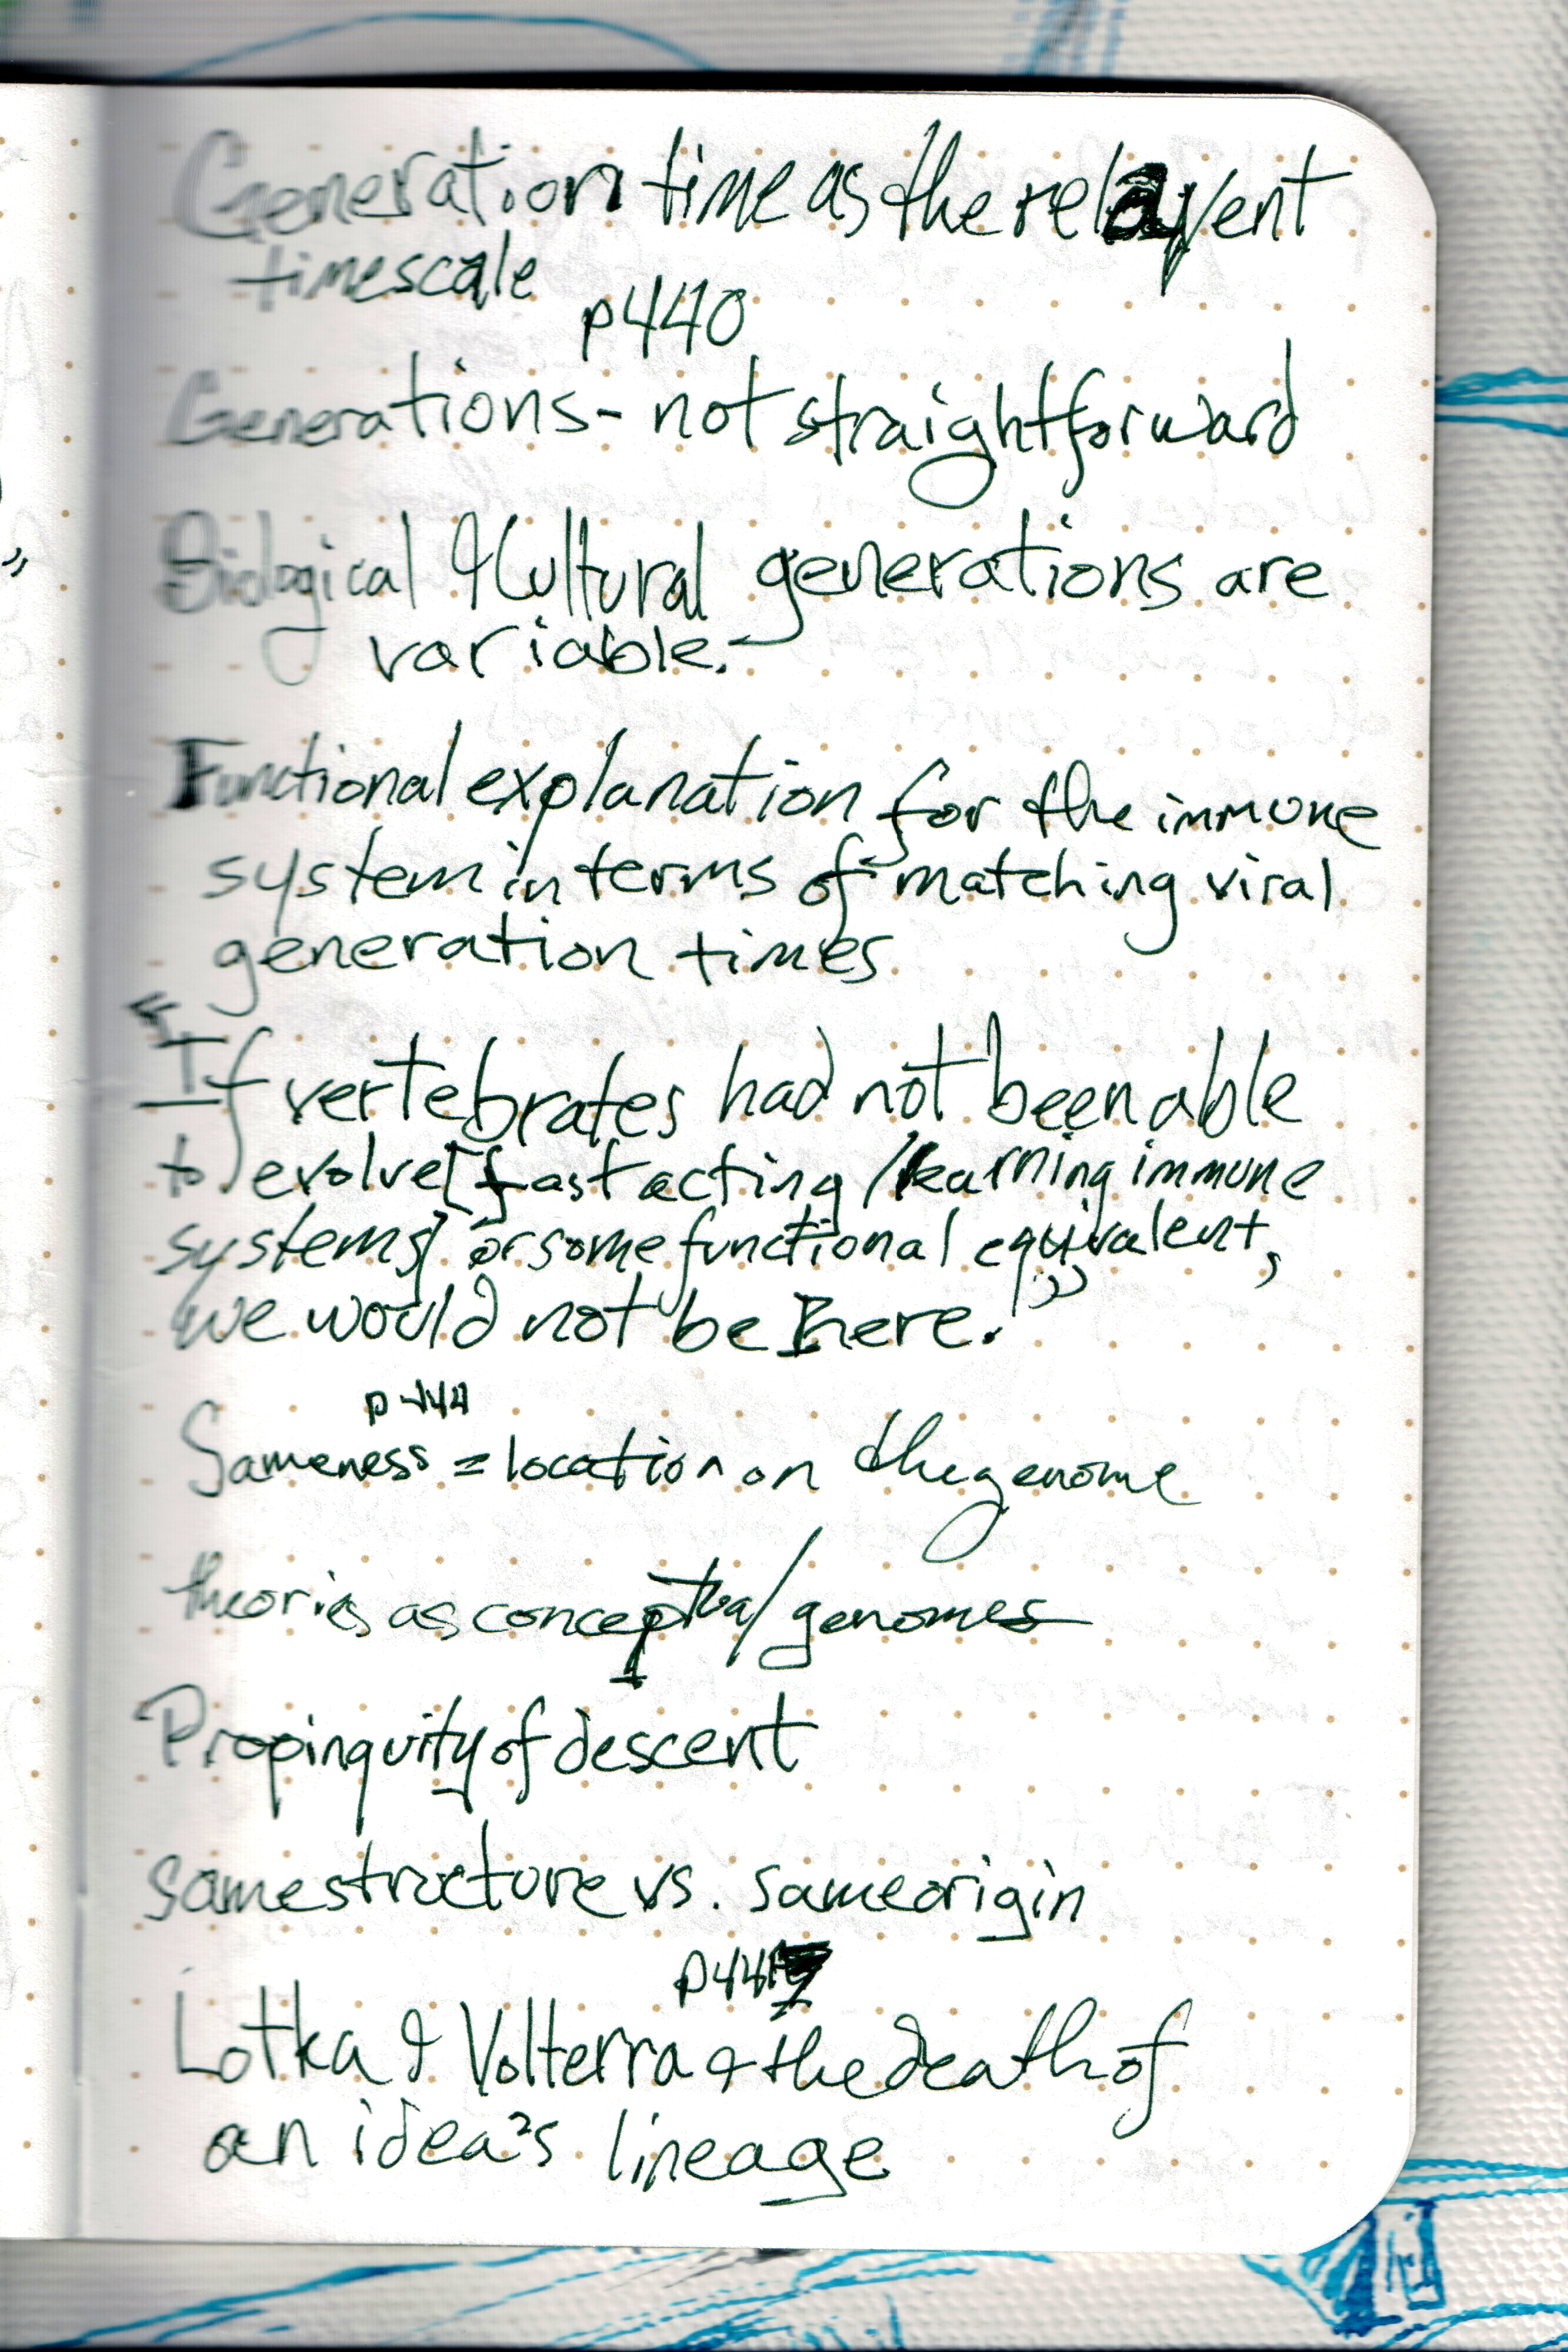 Generation time as the relavent
timescale
p440
Generations - not straightforward
Biological & Cultural generations are
variable.
Functional explanation for the immune
system in terms of matching viral
generation times
"If vertebrates had not been able
to evolve [fast acting / learning immune
systems] or some functional equivalent,
we would not be here."
p444
Sameness = location on the genome
theories as conceptual genomes
Propinquity of descent
same structure vs. same origin
p447
Lotka & Volterra & the death of
an idea's lineage